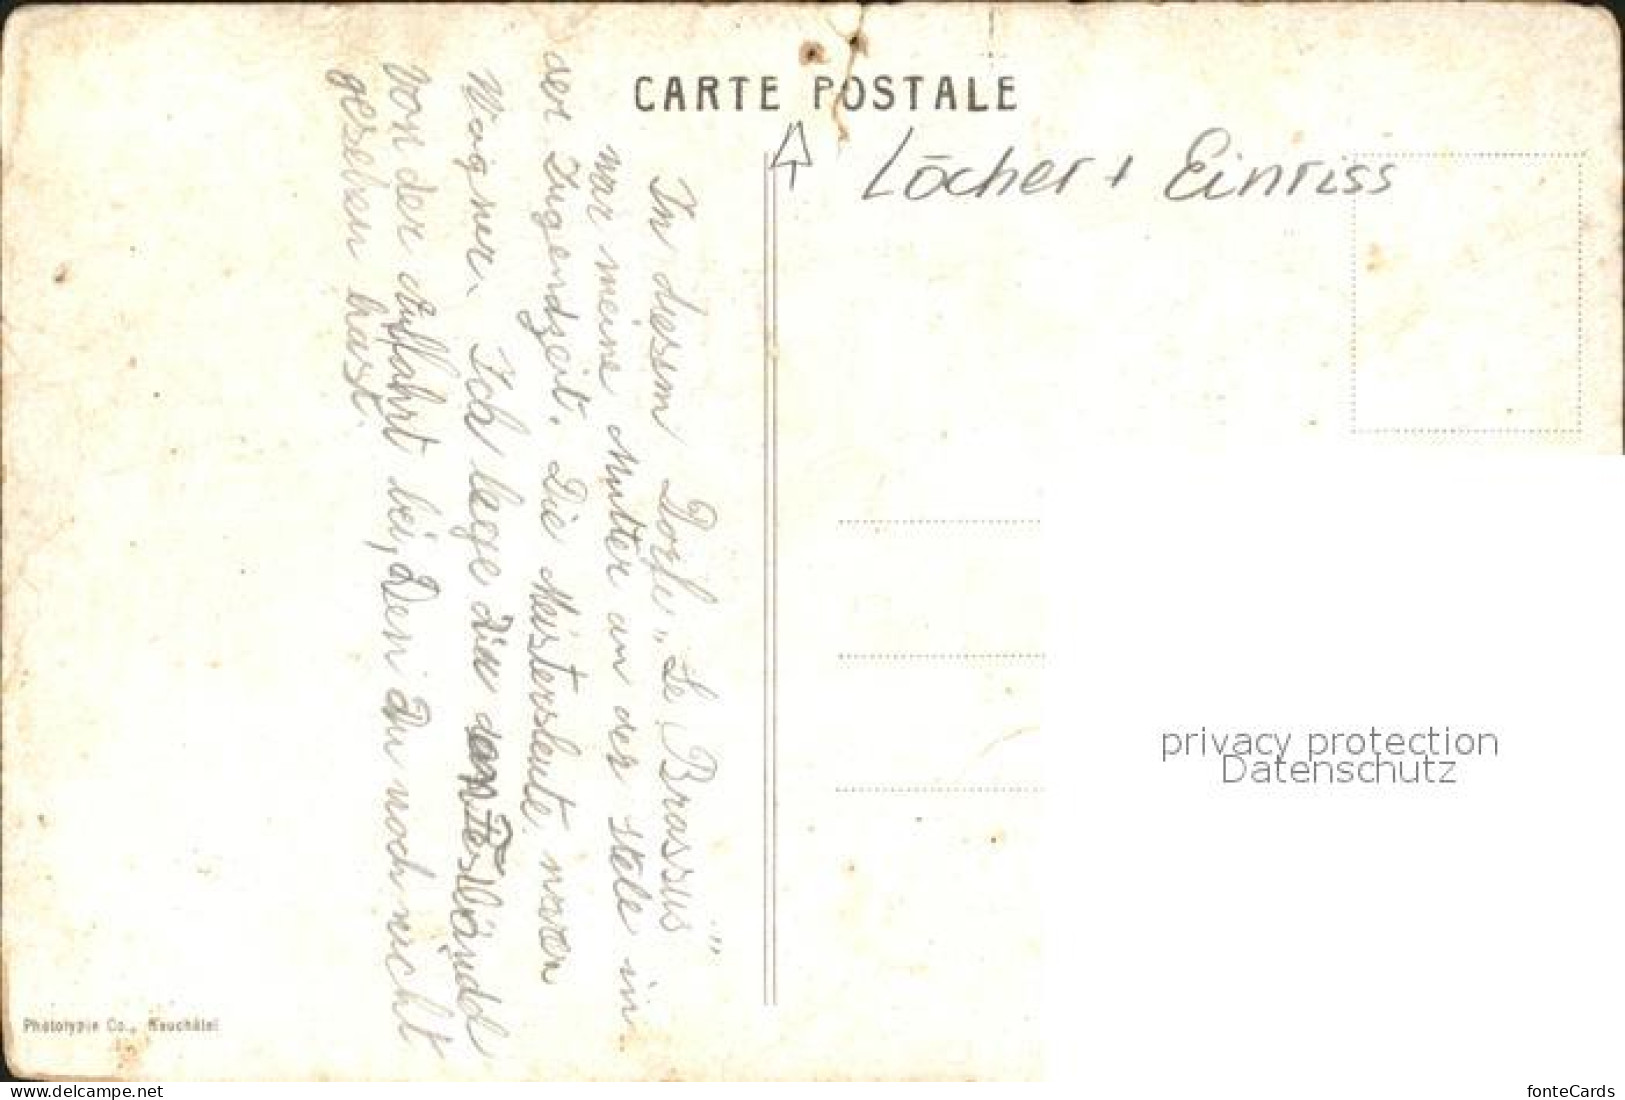 CARTE POSTALE
Löcher + Einriss
In diesem Dorfe „Le Brassus"
war meine Mutter an der stele in
der Jugendzeit. Die Meistersleute waren
Wagner. Ich lege Dir
Von der Auffahrt bei, Den Du noch nicht
gesehen hast.
Phototypie Co., Neuchâtel
privacy protection
Datenschutz
https://www.delcampe.net
fonteCards